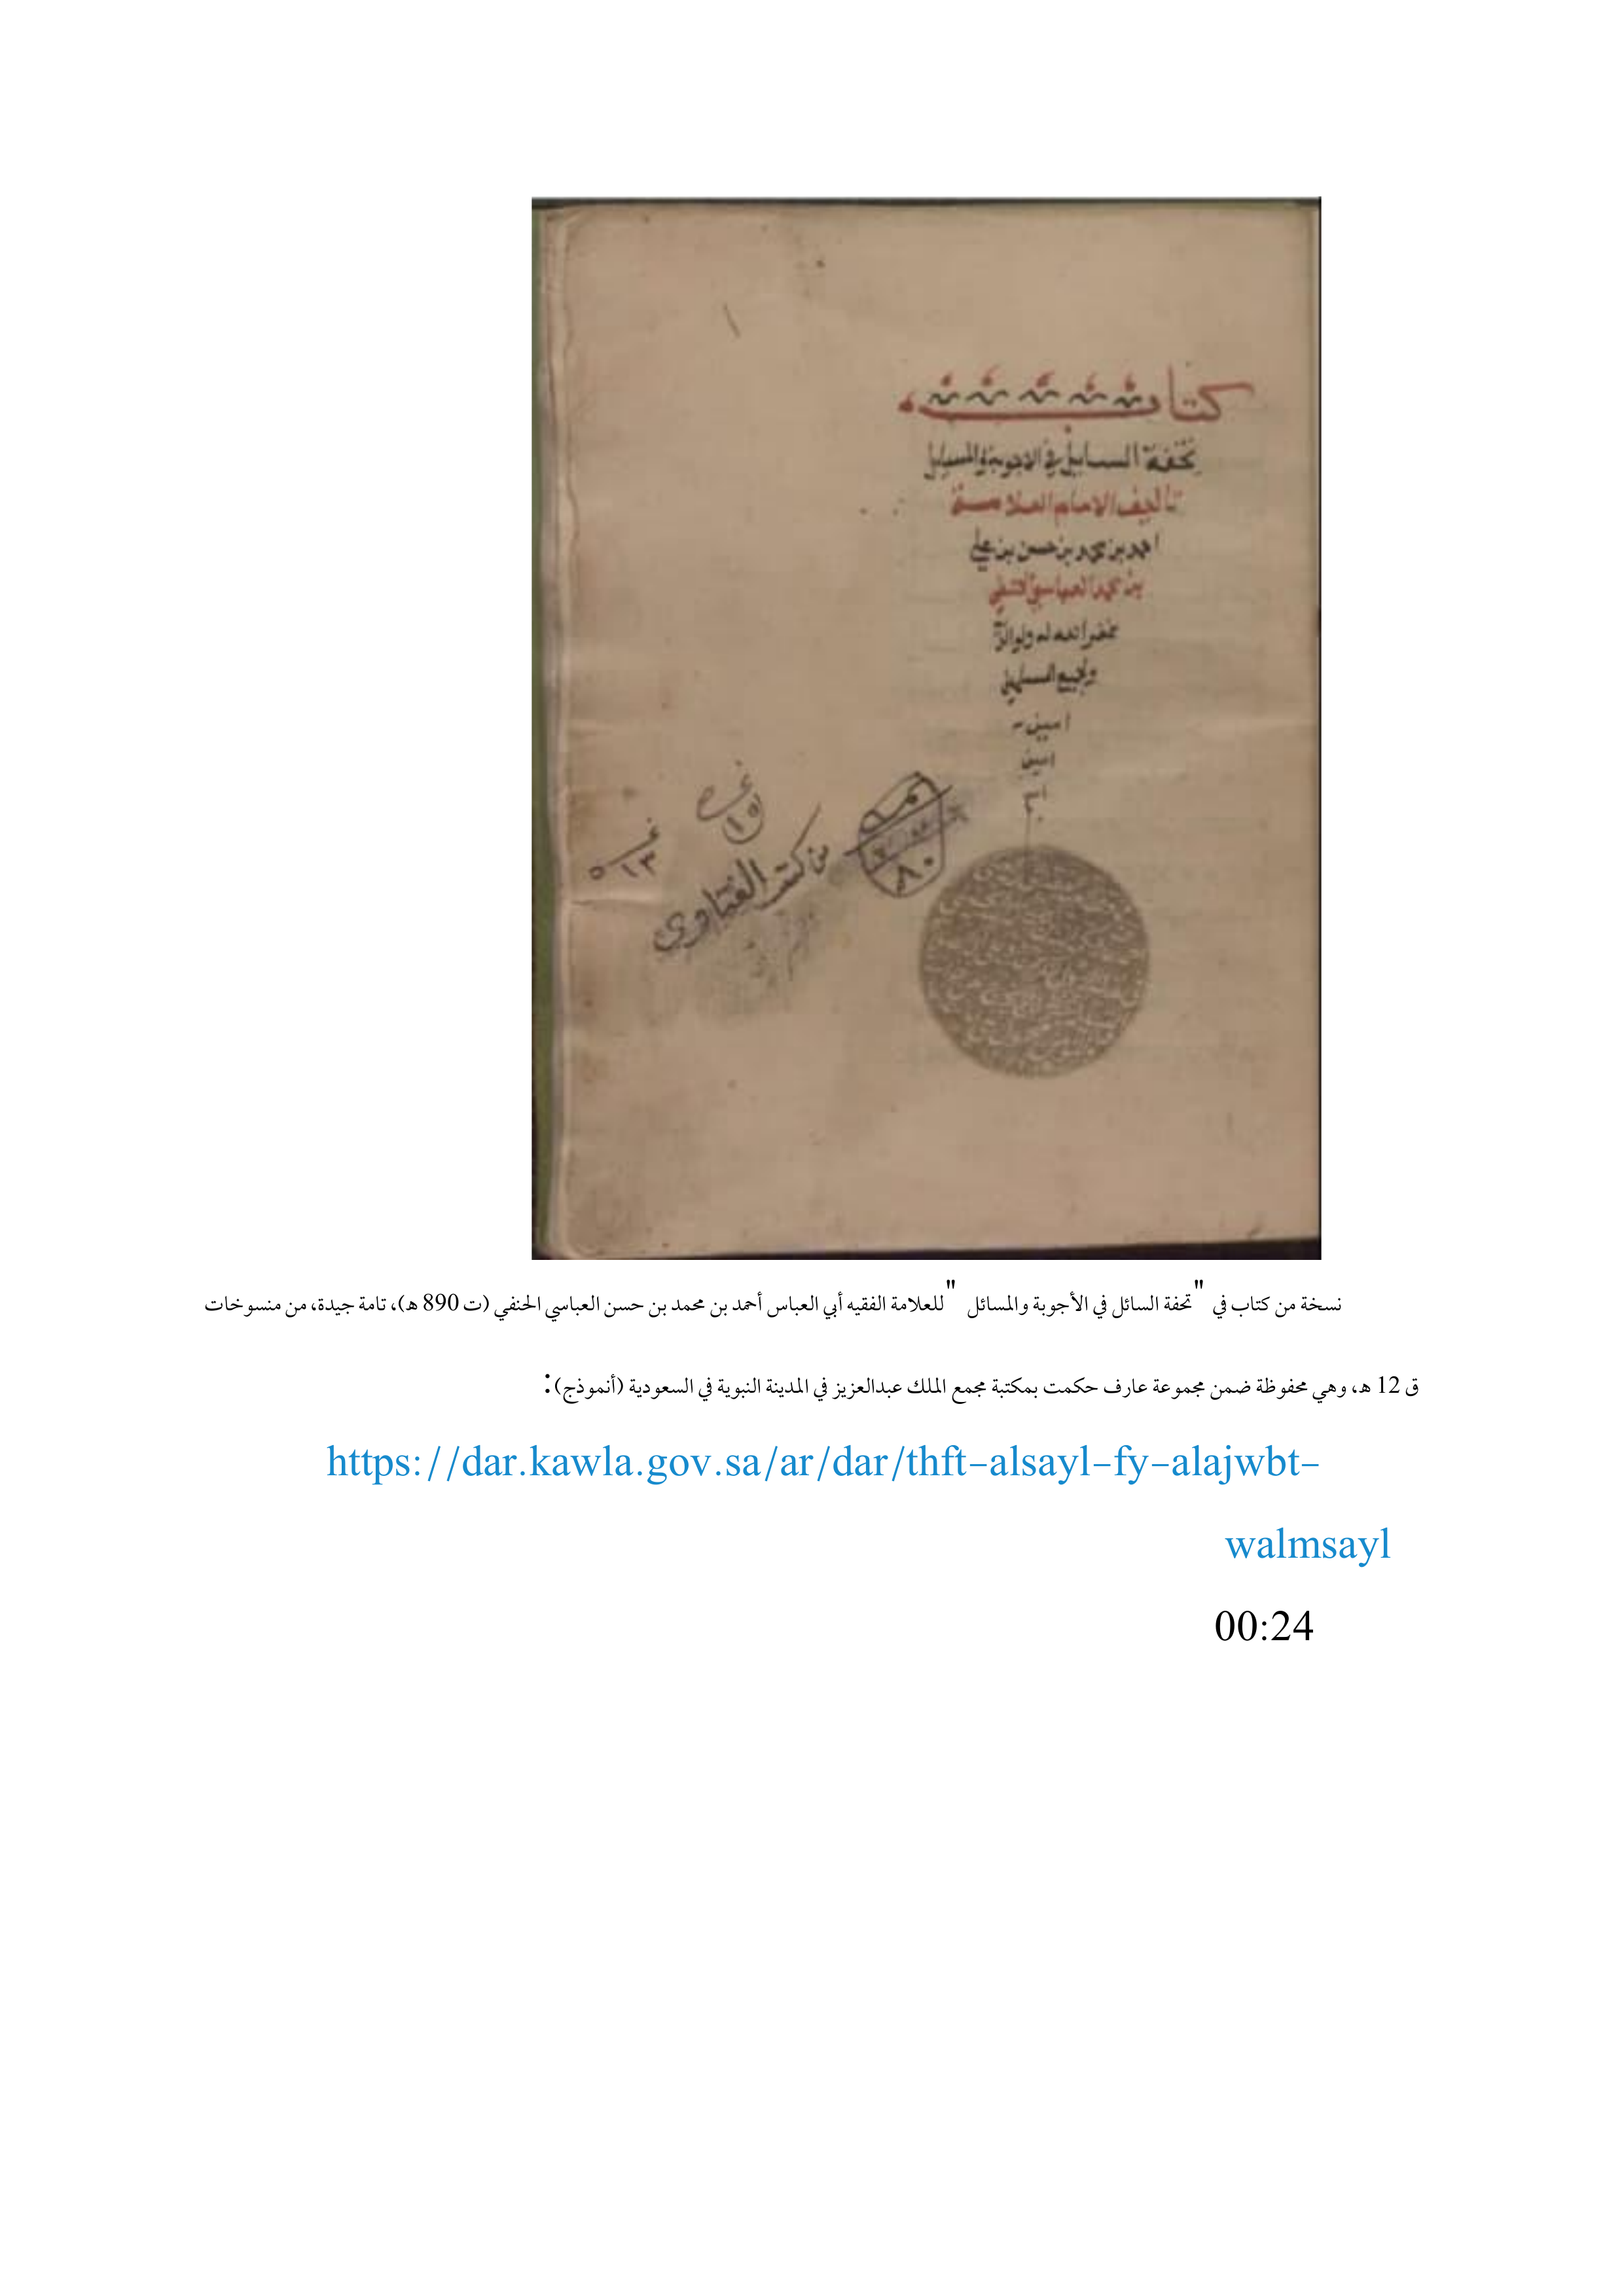 ١
كتاب
تحفة السايل في الاجوبة والمسايل
تاليف الامام العلامة
احمد بن محمد بن حسن بن علي
بن محمد العباسي الحنفي
غفر الله له ولوالديه
ولجميع المسلمين
امين
امين
نمرة
٨٠
١٥
١٣
من كتب الفتاوى
نسخة من كتاب في "تحفة السائل في الأجوبة والمسائل" للعلامة الفقيه أبي العباس أحمد بن محمد بن حسن العباسي الحنفي (ت 890 هـ)، تامة جيدة، من منسوخات
ق 12 هـ، وهي محفوظة ضمن مجموعة عارف حكمت بمكتبة مجمع الملك عبدالعزيز في المدينة النبوية في السعودية (أنموذج):
https://dar.kawla.gov.sa/ar/dar/thft-alsayl-fy-alajwbt-
walmsayl
00:24